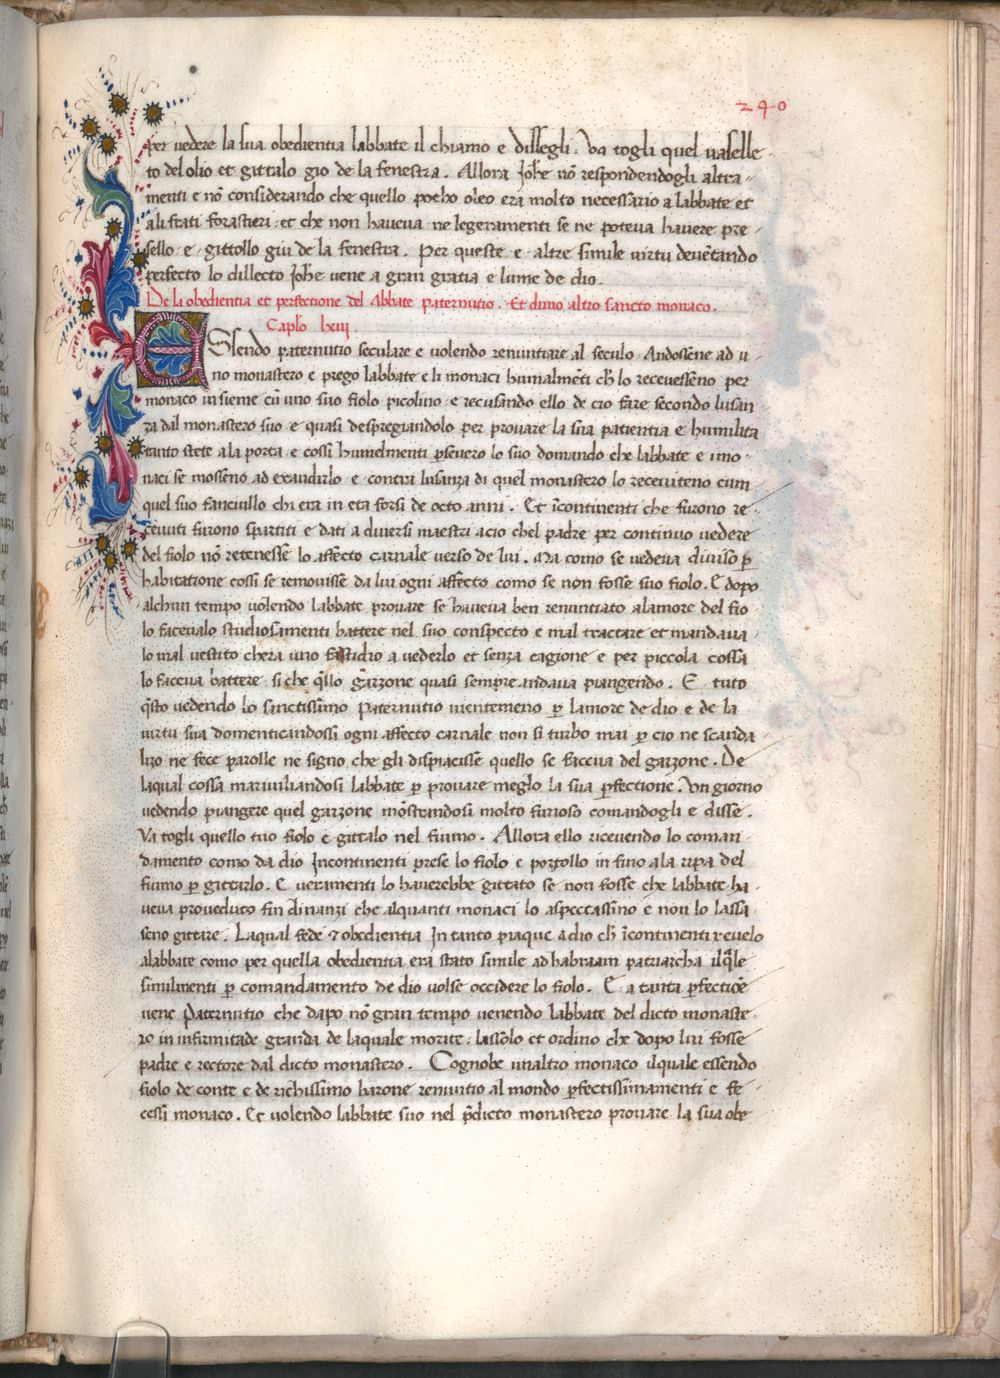 240
per vedere la sua obedientia labbate il chiamo e dissegli. Va togli quel vaselle-
to del olio et gittalo gio de la fenestra. Allora Joħe nō respondendogli altra-
menti e nō considerando che quello pocho oleo era molto necessario a labbate et
ali frati forastieri et che non haveva ne legeramenti se ne poteva havere pre-
sello e gittollo giu de la fenestra. Per queste e altre simile virtu devētando
perfecto lo dillecto Joħe vene a gran gratia e lume de dio.
De la obedientia et perfectione del Abbate paternutio. Et duno altro sancto monaco.
Caplo lxiij.
ESsendo paternutio seculare e volendo renuntiare al seculo Andossene ad u-
no monastero e prego labbate e li monaci humalmēti cħ lo recevesseno per
monaco insieme cū uno suo fiolo picolino e recusando ello de cio fare secondo lusan
za dal monastero suo e quasi despregiandolo per provare la sua patientia e humilita
tanto stete ala porta e cossi humelmenti ꝑsevero lo suo domando che labbate e i mo-
naci se mosseno ad exaudirlo e contra lusanza di quel monastero lo receveteno cum
quel suo fanciullo chi era in eta forsi de octo anni. Et īcontinenti che furono re-
cevuti furono spartiti e dati a diversi maestri acio chel padre per continuo vedere
del fiolo nō retenesse lo affecto carnale verso de lui. Ma como se vedeva diviso ꝑ
habitatione cossi se removisse da lui ogni affecto como se non fosse suo fiolo. E dopo
alchun tempo volendo labbate provare se haveva ben renuntiato alamore del fio
lo facevalo studiosamenti battere nel suo conspecto e mal tractare et mandava
lo mal vestito chera uno fastidio a vederlo et senza cagione e per piccola cossa
lo faceva battere si che q̄llo garzone quasi sempre andava piangendo. E tuto
q̄sto vedendo lo sanctissimo Paternutio nientemeno ꝑ lamore de dio e de la
virtu sua domenticandossi ogni affecto carnale non si turbo mai ꝑ cio ne scanda
lizo ne fece parolle ne signo che gli dispiacisse quello se faceva del garzone. De
laqual cossa maraviliandosi labbate ꝑ provare meglo la sua ꝑfectione. Un giorno
vedendo piangere quel garzone mōstrandosi molto furioso comandogli e disse.
Va togli quello tuo fiolo e gittalo nel fiumo. Allora ello ricevendo lo coman
damento como da dio Incontinenti prese lo fiolo e portollo in fino ala ripa del
fiumo ꝑ gittarlo. E veramenti lo haverebbe gittato se non fosse che labbate ha
veva proveduto fin dinanzi che alquanti monaci lo aspectassino e non lo lassa
seno gittare. Laqual fede ⁊ obedientia In tanto piaque a dio cħ īcontinenti revelo
alabbate como per quella obedientia era stato simile ad habraam patriarcha ilq̄le
similmenti ꝑ comandamento de dio volse occidere lo fiolo. E a tanta ꝑfectiōe
vene Paternutio che dapo nō gran tempo venendo labbate del dicto monaste-
ro in infirmitade granda de laquale morite lassolo et ordino che dopo lui fosse
padre e rectore dal dicto monastero. Cognobe unaltro monaco ilquale essendo
fiolo de conte e de richissimo barone renuntio al mondo ꝑfectissimamenti e fe
cessi monaco. Et volendo labbate suo nel p̄dicto monastero provare la sua obe